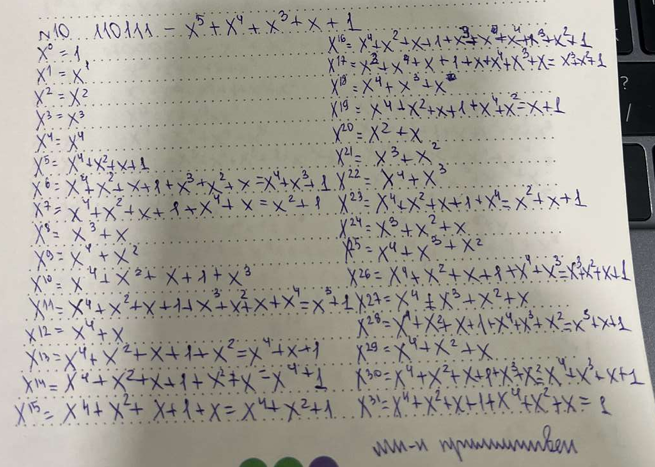 N10. 110111 - x⁵ + x⁴ + x³ + x + 1
x⁰ = 1
x¹ = x¹
x² = x²
x³ = x³
x⁴ = x⁴
x⁵ = x⁴ + x² + x + 1
x⁶ = x⁴ + x² + x + 1 + x³ + x² + x = x⁴ + x³ + 1
x⁷ = x⁴ + x² + x + 1 + x⁴ + x = x² + 1
x⁸ = x³ + x
x⁹ = x⁴ + x²
x¹⁰ = x⁴ + x² + x + 1 + x³
x¹¹ = x⁴ + x² + x + 1 + x³ + x² + x + x⁴ = x³ + 1
x¹² = x⁴ + x
x¹³ = x⁴ + x² + x + 1 + x² = x⁴ + x + 1
x¹⁴ = x⁴ + x² + x + 1 + x² + x = x⁴ + 1
x¹⁵ = x⁴ + x² + x + 1 + x = x⁴ + x² + 1
x¹⁶ = x⁴ + x² + x + 1 + x³ + x = x⁴ + x³ + x² + 1
x¹⁷ = x² + x⁴ + x + 1 + x + x⁴ + x³ + x = x³ + x² + 1
x¹⁸ = x⁴ + x³ + x
x¹⁹ = x⁴ + x² + x + 1 + x⁴ + x² = x + 1
x²⁰ = x² + x
x²¹ = x³ + x²
x²² = x⁴ + x³
x²³ = x⁴ + x² + x + 1 + x⁴ = x² + x + 1
x²⁴ = x³ + x² + x
x²⁵ = x⁴ + x³ + x²
x²⁶ = x⁴ + x² + x + 1 + x⁴ + x³ = x³ + x² + x + 1
x²⁷ = x⁴ + x³ + x² + x
x²⁸ = x⁴ + x² + x + 1 + x⁴ + x³ + x² = x³ + x + 1
x²⁹ = x⁴ + x² + x
x³⁰ = x⁴ + x² + x + 1 + x³ + x² = x⁴ + x³ + x + 1
x³¹ = x⁴ + x² + x + 1 + x⁴ + x² + x = 1
мн-н примитивен